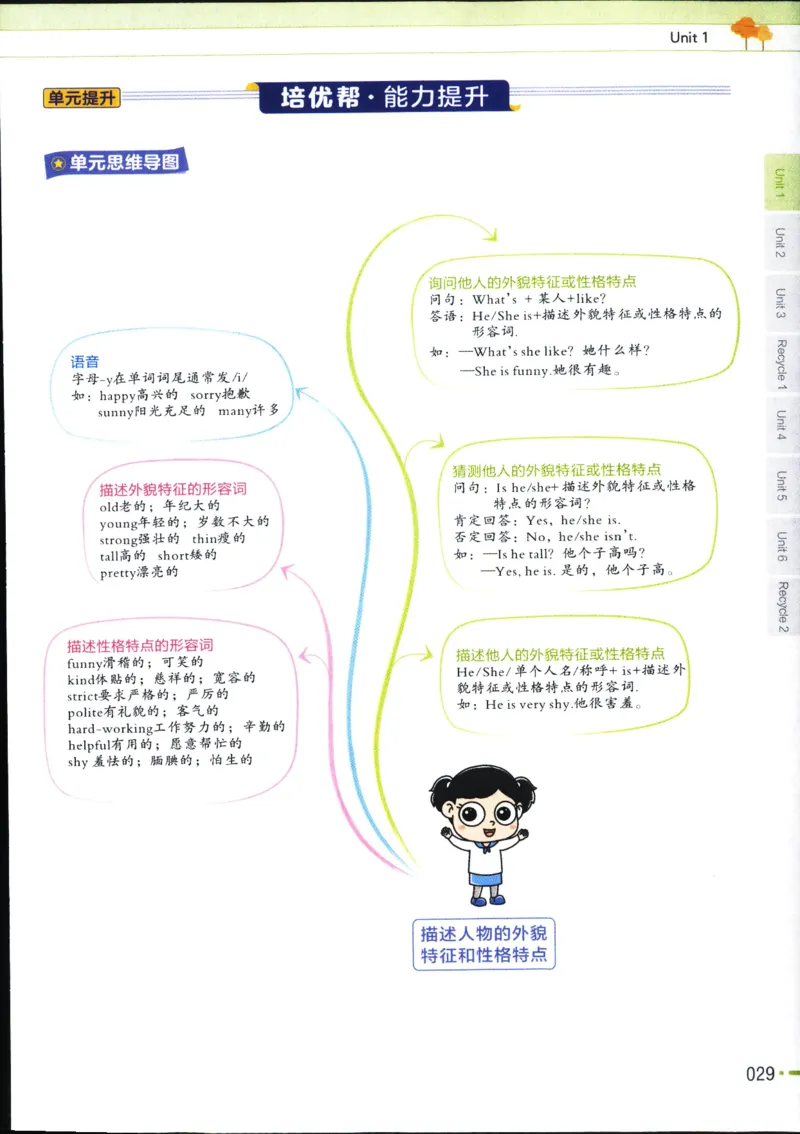 Unit 1
单元提升
培优帮·能力提升
单元思维导图
询问他人的外貌特征或性格特点
问句：What's + 某人+like?
答语：He/She is+描述外貌特征或性格特点的
形容词.
如：—What's she like? 她什么样?
—She is funny.她很有趣。
语音
字母-y在单词词尾通常发/i/
如：happy高兴的 sorry抱歉
sunny阳光充足的 many许多
猜测他人的外貌特征或性格特点
问句：Is he/she+描述外貌特征或性格
特点的形容词?
肯定回答：Yes, he/she is.
否定回答：No, he/she isn't.
如：—Is he tall? 他个子高吗?
—Yes, he is. 是的，他个子高。
描述外貌特征的形容词
old老的；年纪大的
young年轻的；岁数不大的
strong强壮的 thin瘦的
tall高的 short矮的
pretty漂亮的
描述性格特点的形容词
funny滑稽的；可笑的
kind体贴的；慈祥的；宽容的
strict要求严格的；严厉的
polite有礼貌的；客气的
hard-working工作努力的；辛勤的
helpful有用的；愿意帮忙的
shy 羞怯的；腼腆的；怕生的
描述他人的外貌特征或性格特点
He/She/ 单个人名/称呼+ is+描述外
貌特征或性格特点的形容词.
如：He is very shy.他很害羞。
描述人物的外貌
特征和性格特点
Unit 1
Unit 2
Unit 3
Recycle 1
Unit 4
Unit 5
Unit 6
Recycle 2
029